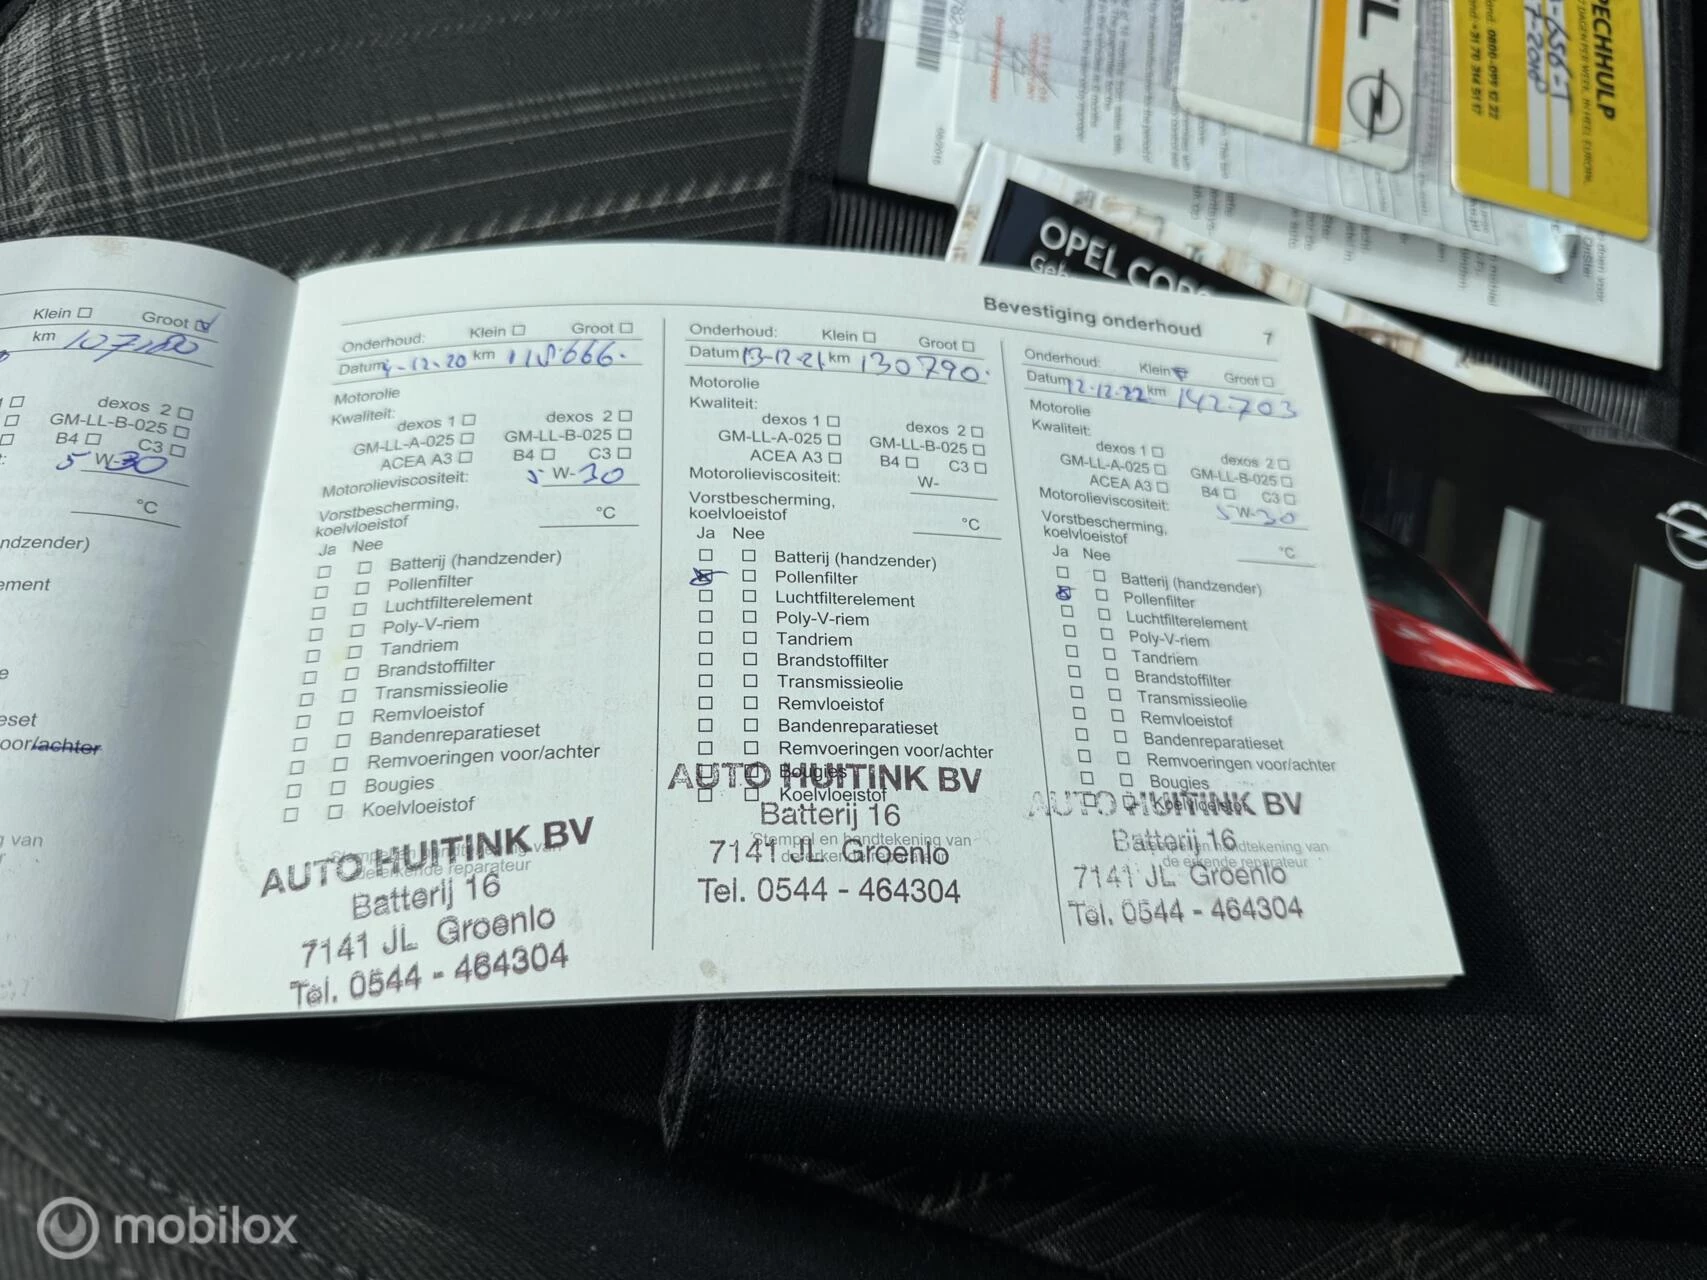 PECHHULP
OPEL CORS
Bevestiging onderhoud
7
Klein ☐ Groot ☑
km 107,180
dexos 2 ☐
GM-LL-B-025 ☐
B4 ☐ C3 ☐
5 W-30
°C
ndzender)
ement
eset
oor/achter
g van
Onderhoud: Klein ☐ Groot ☐
km 118.666.
Motorolie
Kwaliteit:
dexos 1 ☐ dexos 2 ☐
GM-LL-A-025 ☐ GM-LL-B-025 ☐
ACEA A3 ☐ B4 ☐ C3 ☐
Motorolieviscositeit: 5 W-30
Vorstbescherming,
koelvloeistof °C
Ja Nee
☐ ☐ Batterij (handzender)
☐ ☐ Pollenfilter
☐ ☐ Luchtfilterelement
☐ ☐ Poly-V-riem
☐ ☐ Tandriem
☐ ☐ Brandstoffilter
☐ ☐ Transmissieolie
☐ ☐ Remvloeistof
☐ ☐ Bandenreparatieset
☐ ☐ Remvoeringen voor/achter
☐ ☐ Bougies
☐ ☐ Koelvloeistof
Stempel en handtekening van
de erkende reparateur
AUTO HUITINK BV
Batterij 16
7141 JL Groenlo
Tel. 0544 - 464304
Onderhoud: Klein ☐ Groot ☐
Datum 13-12-21 km 130790.
Motorolie
Kwaliteit:
dexos 1 ☐ dexos 2 ☐
GM-LL-A-025 ☐ GM-LL-B-025 ☐
ACEA A3 ☐ B4 ☐ C3 ☐
Motorolieviscositeit: W-
Vorstbescherming,
koelvloeistof °C
Ja Nee
☐ ☐ Batterij (handzender)
☒ ☐ Pollenfilter
☐ ☐ Luchtfilterelement
☐ ☐ Poly-V-riem
☐ ☐ Tandriem
☐ ☐ Brandstoffilter
☐ ☐ Transmissieolie
☐ ☐ Remvloeistof
☐ ☐ Bandenreparatieset
☐ ☐ Remvoeringen voor/achter
☐ ☐ Bougies
☐ ☐ Koelvloeistof
Stempel en handtekening van
de erkende reparateur
AUTO HUITINK BV
Batterij 16
7141 JL Groenlo
Tel. 0544 - 464304
Onderhoud: Klein ☑ Groot ☐
Datum 12.12.22 km 142.703
Motorolie
Kwaliteit:
dexos 1 ☐ dexos 2 ☐
GM-LL-A-025 ☐ GM-LL-B-025 ☐
ACEA A3 ☐ B4 ☐ C3 ☐
Motorolieviscositeit: 5 W-30
Vorstbescherming,
koelvloeistof °C
Ja Nee
☐ ☐ Batterij (handzender)
☒ ☐ Pollenfilter
☐ ☐ Luchtfilterelement
☐ ☐ Poly-V-riem
☐ ☐ Tandriem
☐ ☐ Brandstoffilter
☐ ☐ Transmissieolie
☐ ☐ Remvloeistof
☐ ☐ Bandenreparatieset
☐ ☐ Remvoeringen voor/achter
☐ ☐ Bougies
☐ ☐ Koelvloeistof
Stempel en handtekening van
de erkende reparateur
AUTO HUITINK BV
Batterij 16
7141 JL Groenlo
Tel. 0544 - 464304
mobilox